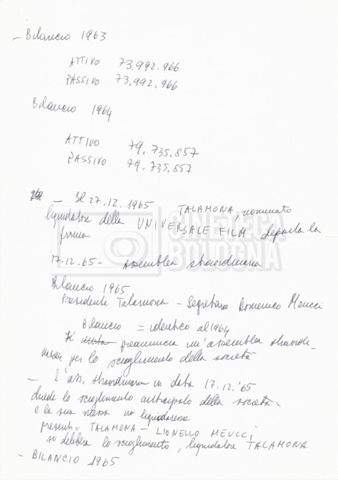 - Bilancio 1963
ATTIVO 73.992.966
PASSIVO 73.992.966
Bilancio 1964
ATTIVO 79.735.857
PASSIVO 79.735.857
- Il 27.12.1965 TALAMONA, nominato
liquidatore della UNIVERSALE FILM, deposita la
firma
17.12.65 - Assemblea straordinaria
Bilancio 1965
Presidente Talamona - Segretario Domenico Meucci
Bilancio = identico al 1964
Si preannuncia un'assemblea straordi-
naria per lo scioglimento della società
- L'ass. straordinaria in data 17.12.'65
chiede lo scioglimento anticipato della società
e la sua messa in liquidazione
presenti = TALAMONA - LIONELLO MEUCCI
si delibera lo scioglimento, liquidatore TALAMONA
- BILANCIO 1965
CINETECA
BOLOGNA